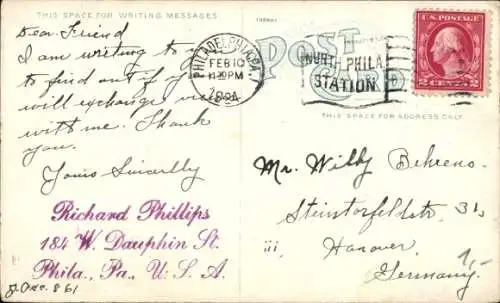 THIS SPACE FOR WRITING MESSAGES
Dear Friend
I am writing to you
to find out if you
will exchange views
with me. Thank
you.
Yours Sincerlly
Richard Phillips
184 W. Dauphin St.
Phila., Pa., U. S. A.
PHILADELPHIA, PA.
FEB 10
PM
POST CARD
NORTH PHILA.
STATION
U.S. POSTAGE
2 CENTS 2
THIS SPACE FOR ADDRESS ONLY
Mr. Willy Behrens
Steintorfeldstr. 31,
iii, Hanover
Germany
1,-